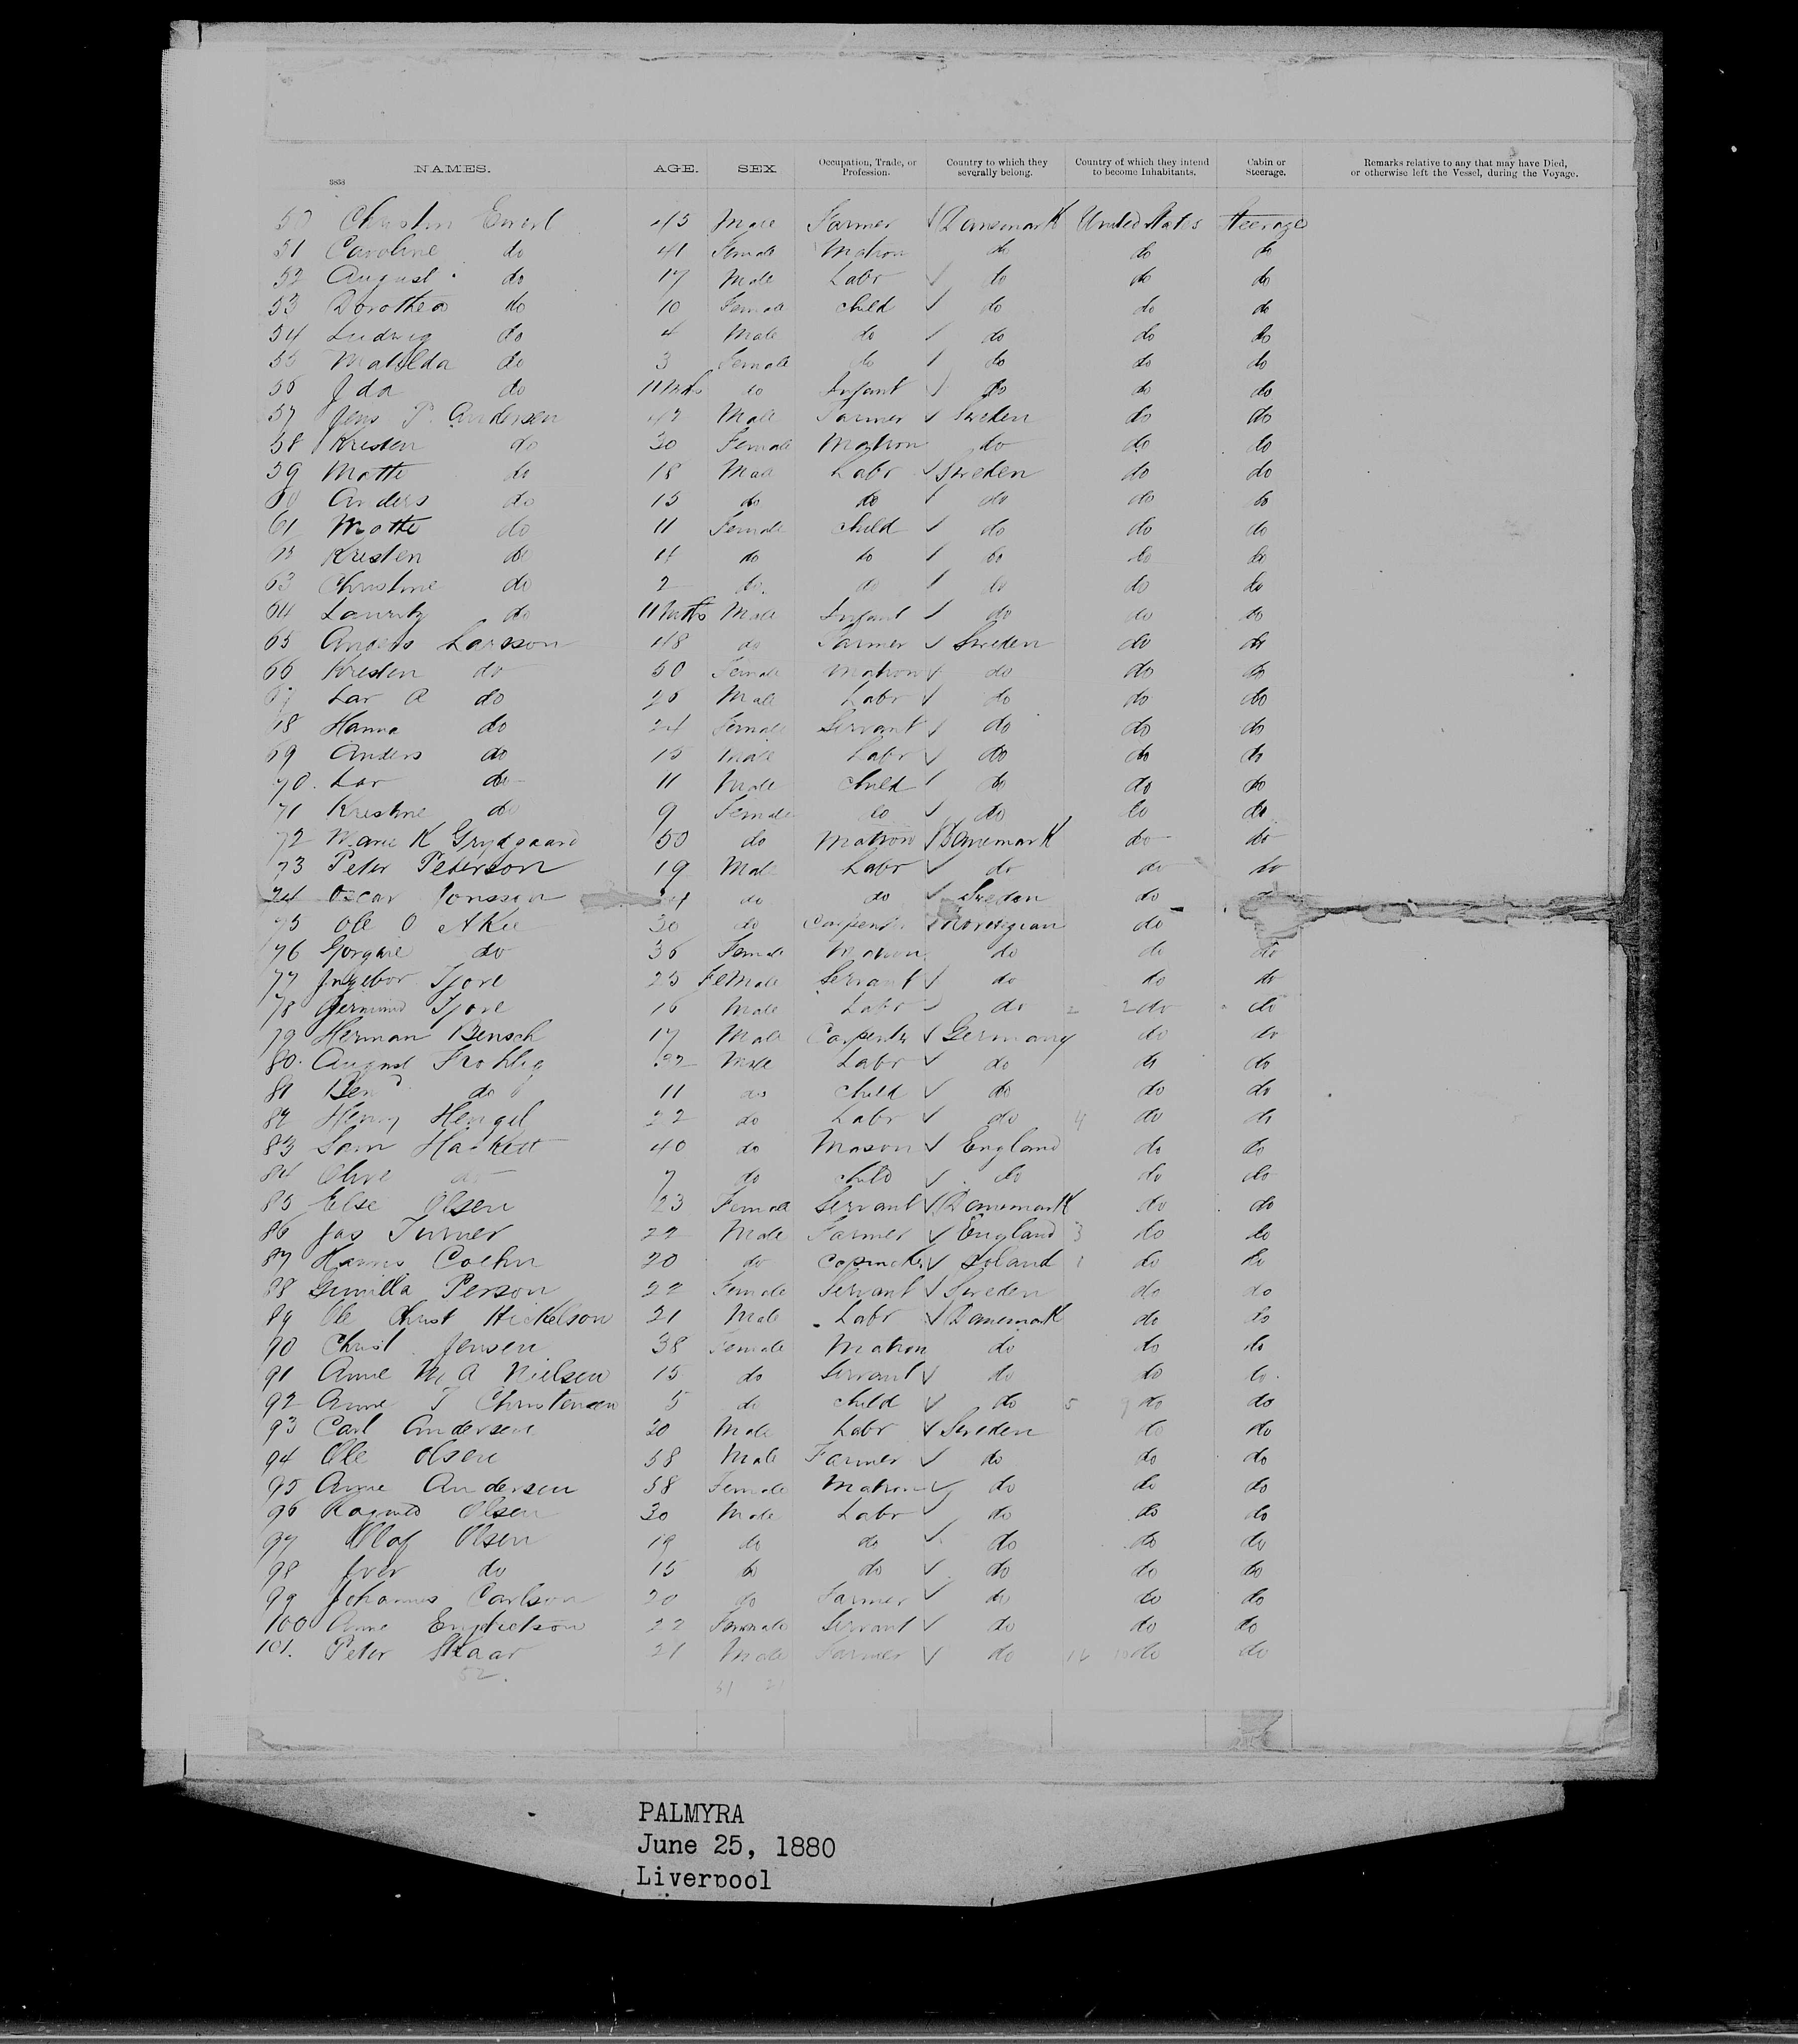 NAMES. AGE. SEX Occupation, Trade, or Profession. Country to which they severally belong. Country of which they intend to become Inhabitants. Cabin or Steerage. Remarks relative to any that may have Died, or otherwise left the Vessel, during the Voyage.
50 43 Male Farmer Danemark United States Steerage
51 Caroline do 41 Female Matron do do do
52 August do 17 Male Labr do do do
53 Dorothea do 10 Female Child do do do
54 Ludwig do 4 Male do do do do
55 Matilda do 3 Female do do do do
56 Ida do 11 Mths do Infant do do do
57 Jens P. Andersen 42 Male Farmer Sweden do do
58 Kristen do 30 Female Matron do do do
59 Matts do 18 Male Labr Sweden do do
60 Anders do 15 do do do do do
61 Matts do 11 Female Child do do do
62 Kristen do 4 do do do do do
63 Christine do 2 do do do do do
64 Lauritz do 11 Mths Male Infant do do do
65 Anders Larsson 48 do Farmer Sweden do do
66 Kristen do 50 Female Matron do do do
67 Lar A do 26 Male Labr do do do
68 Hanna do 24 Female Servant do do do
69 Anders do 15 Male Labr do do do
70. Lar do 11 Male Child do do do
71 Kristine do 9 Female do do do do
72 Marie K Grydgaard 50 do Matron Danemark do do
73 Peter Peterson 19 Mal Labr do do do
74 Oscar Jonsson do do Sweden do do
75 Ole O Akre 30 do Carpent Norwegian do
76 do 36 Female Matron do do do
77 Ingebor Tjore 25 Female Servant do do do
78 Tjore 16 Male Labr do 2 2 do do
79 Herman Bensch 17 Male Carpentr Germany do do
80. August Frohlig 32 Male Labr do do do
81 do 11 do Child do do do
82 Henry Hengel 22 do Labr do 4 do do
83 Sam Hackett 40 do Mason England do do
84 Olive do 7 do Child do do do
85 Else Olsen 23 Female Servant Danemark do do
86 Jas Turner 22 Male Farmer England 3 do do
87 20 do 1 do do
88 Gunilla Person 22 Female Servant Sweden do do
89 Ole Christ Mickelson 21 Male Labr Danemark do do
90 Christ Jensen 38 Female Matron do do do
91 Anne M A Nielsen 15 do Servant do do do
92 Anne T Christensen 5 do Child do 5 9 do do
93 Carl Andersen 20 Male Labr Sweden do do
94 Ole Olsen 58 Male Farmer do do do
95 Anne Andersen 58 Female Matron do do do
96 Olsen 30 Male Labr do do do
97 Olof Olsen 19 do do do do do
98 Iver do 15 do do do do do
99 Johannes Carlson 20 do Farmer do do do
100 Anne 22 Female Servant do do do
101. Peter Skaar 21 Male Farmer do 14 10 do do
52. 31 21
PALMYRA
June 25, 1880
Liverpool